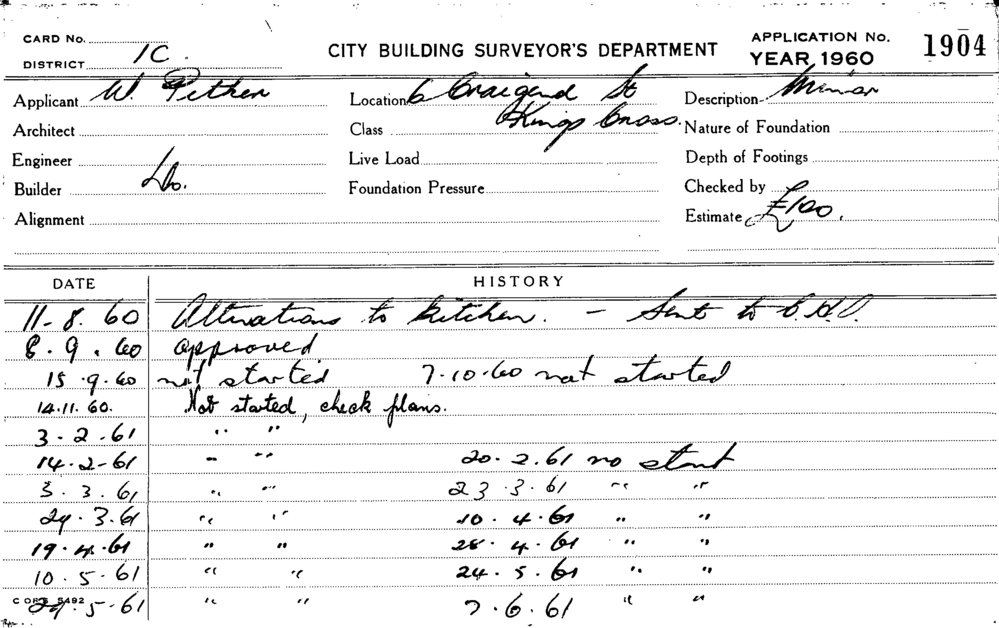 CARD No.
DISTRICT 1C.
CITY BUILDING SURVEYOR'S DEPARTMENT
APPLICATION No. 1904
YEAR, 1960
Applicant W. Pether Location 6 Craigend St Description Minor
Architect Class Kings Cross. Nature of Foundation
Engineer Live Load Depth of Footings
Builder Do. Foundation Pressure Checked by
Alignment Estimate £100.
DATE HISTORY
11-8.60 Alterations to Kitchen. - Sent to
8.9.60 approved.
15.9.60 not started 7.10.60 not started
14.11.60. Not started, check plans.
3.2.61 " "
14.2-61 " " 20.2.61 no start
3.3.61 " " 23.3.61 " "
29.3.61 " " 10.4.61 " "
19.4.61 " " 28.4.61 " "
10.5.61 " " 24.5.61 " "
29.5.61 " " 7.6.61 " "